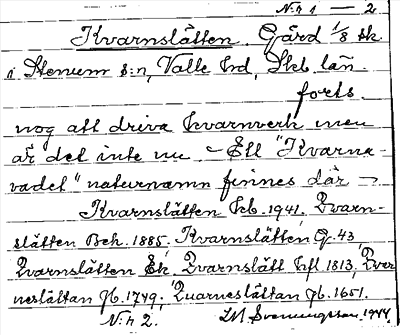 N:r 1 — 2
Kvarnslätten. Gård 1/8 sk
i Stenum s:n, Valle hrd, Skb. län
forts.
nog att driva kvarnverk men
är det inte nu – Ett "Kvarna-
vadet" naturnamn finnes där –
Kvarnslätten kb. 1941. Qvarn-
slätten Beh. 1885. Kvarnslätten G. 43,
Qvarnslätten Ek. Qvarnslätt hfl 1813, Qver
neslättan Jb. 1749. Quarneslättan Jb. 1651.
N:r 2. LM Svenungsson. 1944.